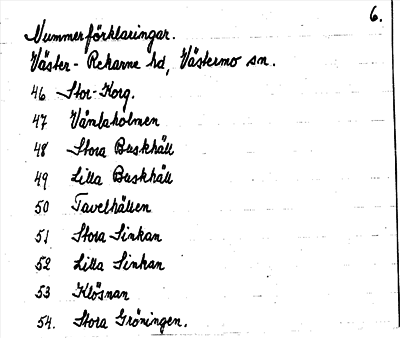 6.
Nummerförklaringar.
Väster-Rekarne hd, Västermo sn.
46 Stor-Korg.
47 Vämlaholmen
48 Stora Buskhäll
49 Lilla Buskhäll
50 Tavelhällen
51 Stora Sinkan
52 Lilla Sinkan
53 Klösnan
54. Stora Gröningen.